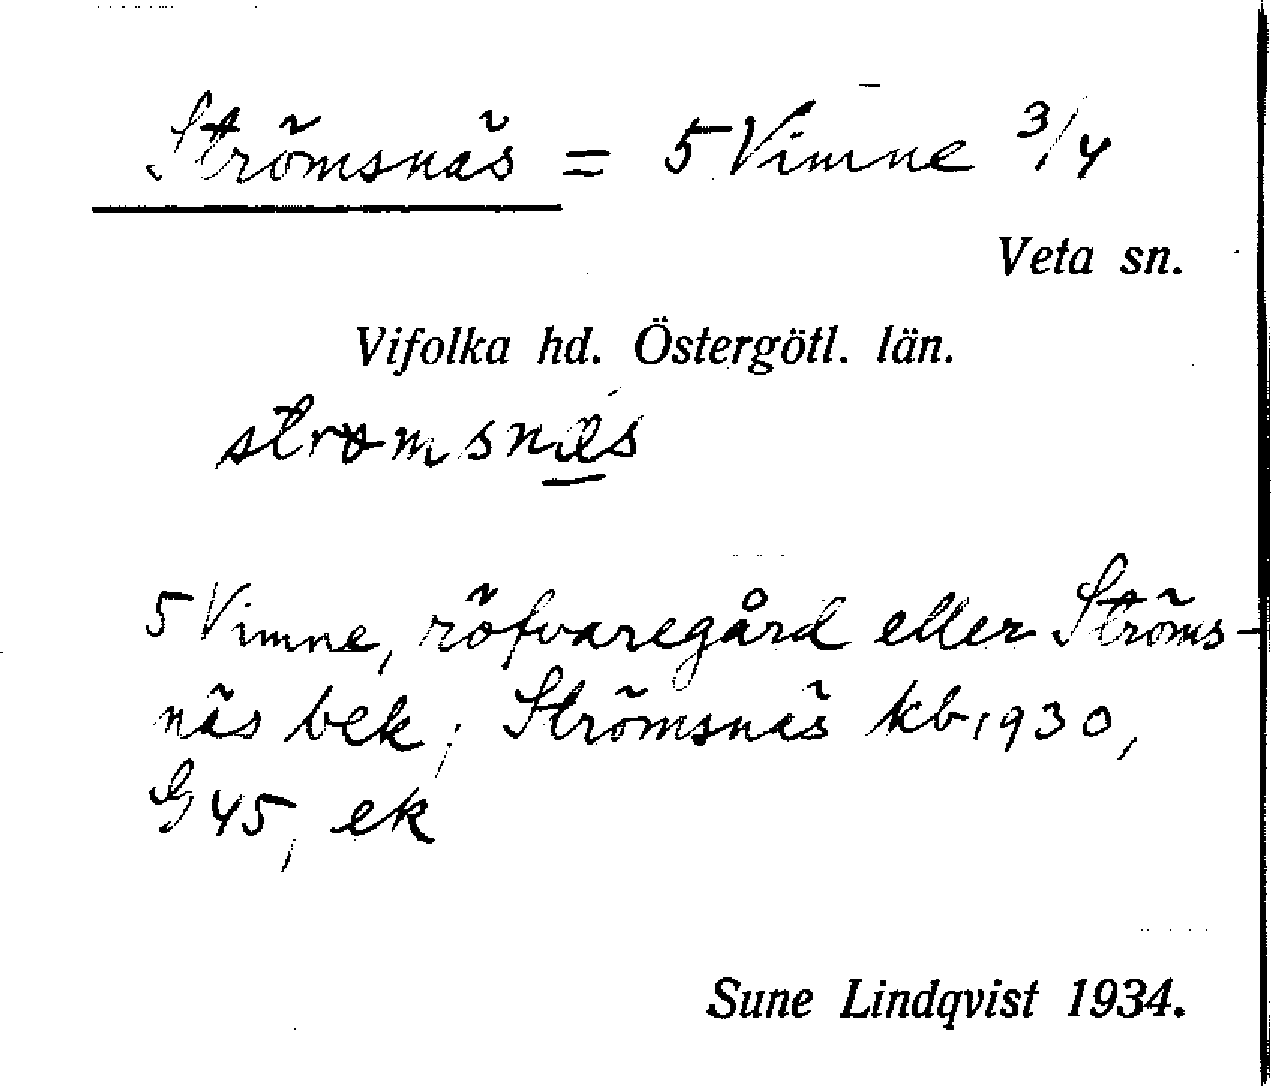 Strömsnäs = 5 Vimne 3/4
Veta sn.
Vifolka hd. Östergötl. län.
strømsnæs
5 Vimne, röfvaregård eller Ströms-
näs bek; Strömsnäs kb 1930,
G 45, ek
Sune Lindqvist 1934.